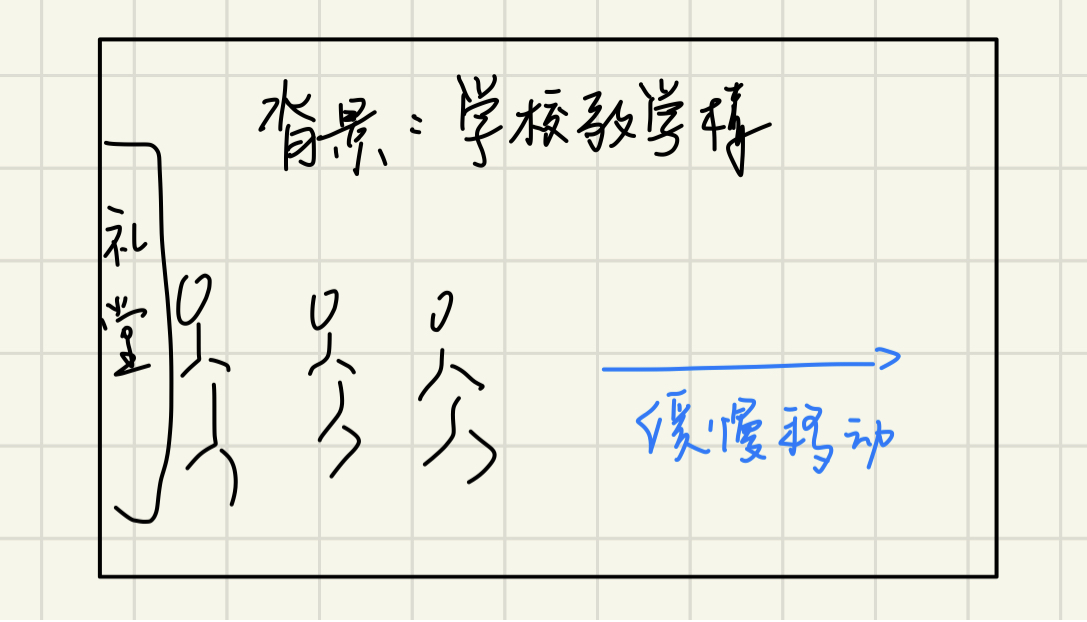 背景：学校教学楼
礼堂
缓慢移动